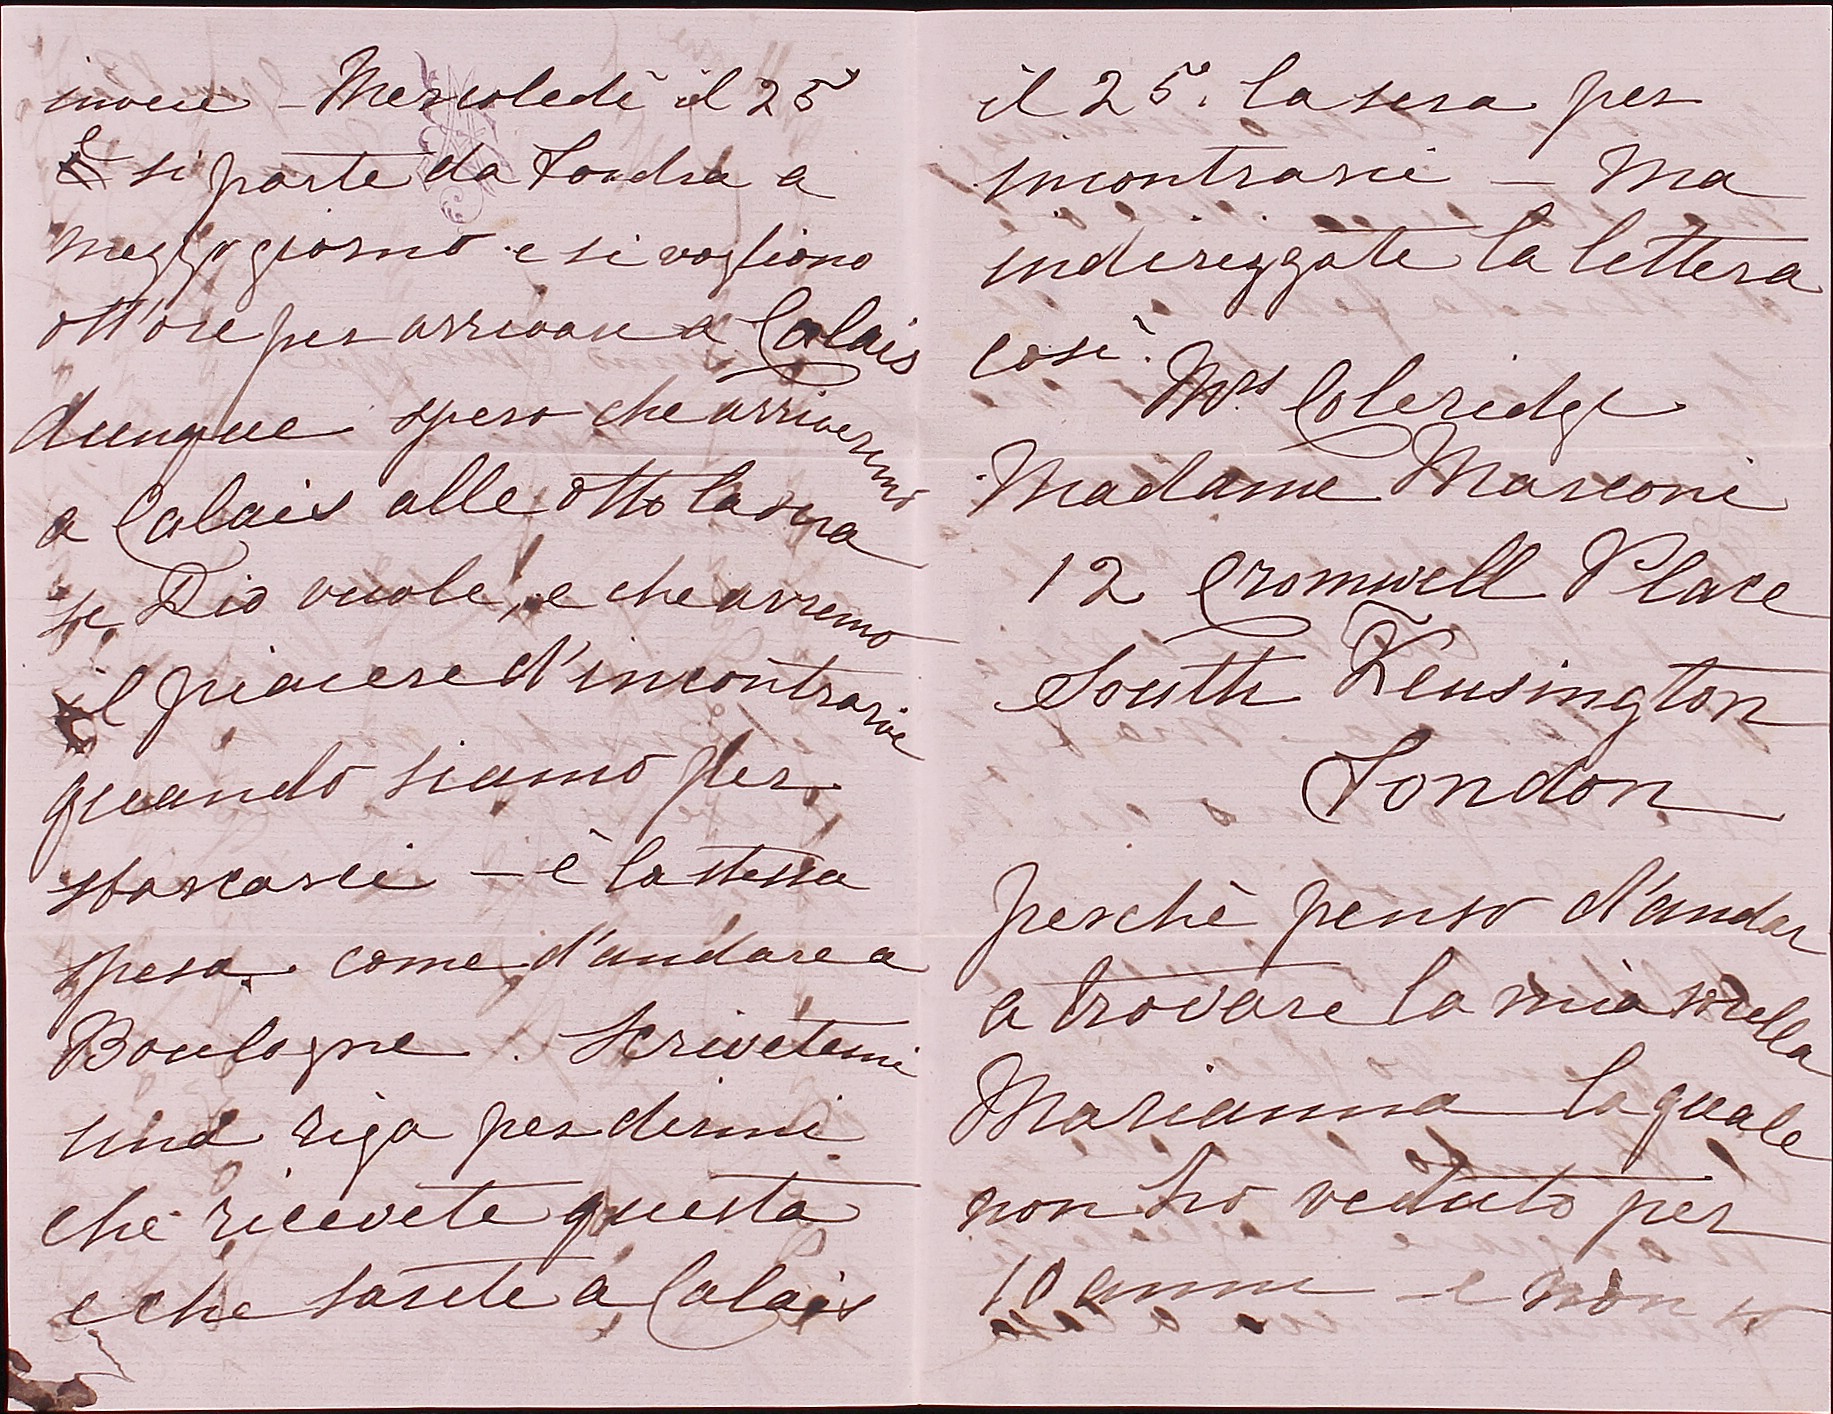 invece – Mercoledì il 25
e si parte da Londra a
mezzo giorno e si vogliono
ott'ore per arrivare a Calais
dunque spero che arriveremo
a Calais alle otto la sera
se Dio vuole, e che avremo
il piacere d'incontrarvi
quando siamo per
sbarcarci – è la stessa
spesa come d'andare a
Boulogne. Scrivetemi
una riga per dirmi
che ricevete questa
e che sarete a Calais
il 25. la sera per
incontrarci – Ma
indirizzate la lettera
così.
Mrs Coleridge
Madame Marconi
12 Cromwell Place
South Kensington
London
perchè penso d'andar
a trovare la mia sorella
Marianna la quale
non ho veduto per
10 anni – e non so